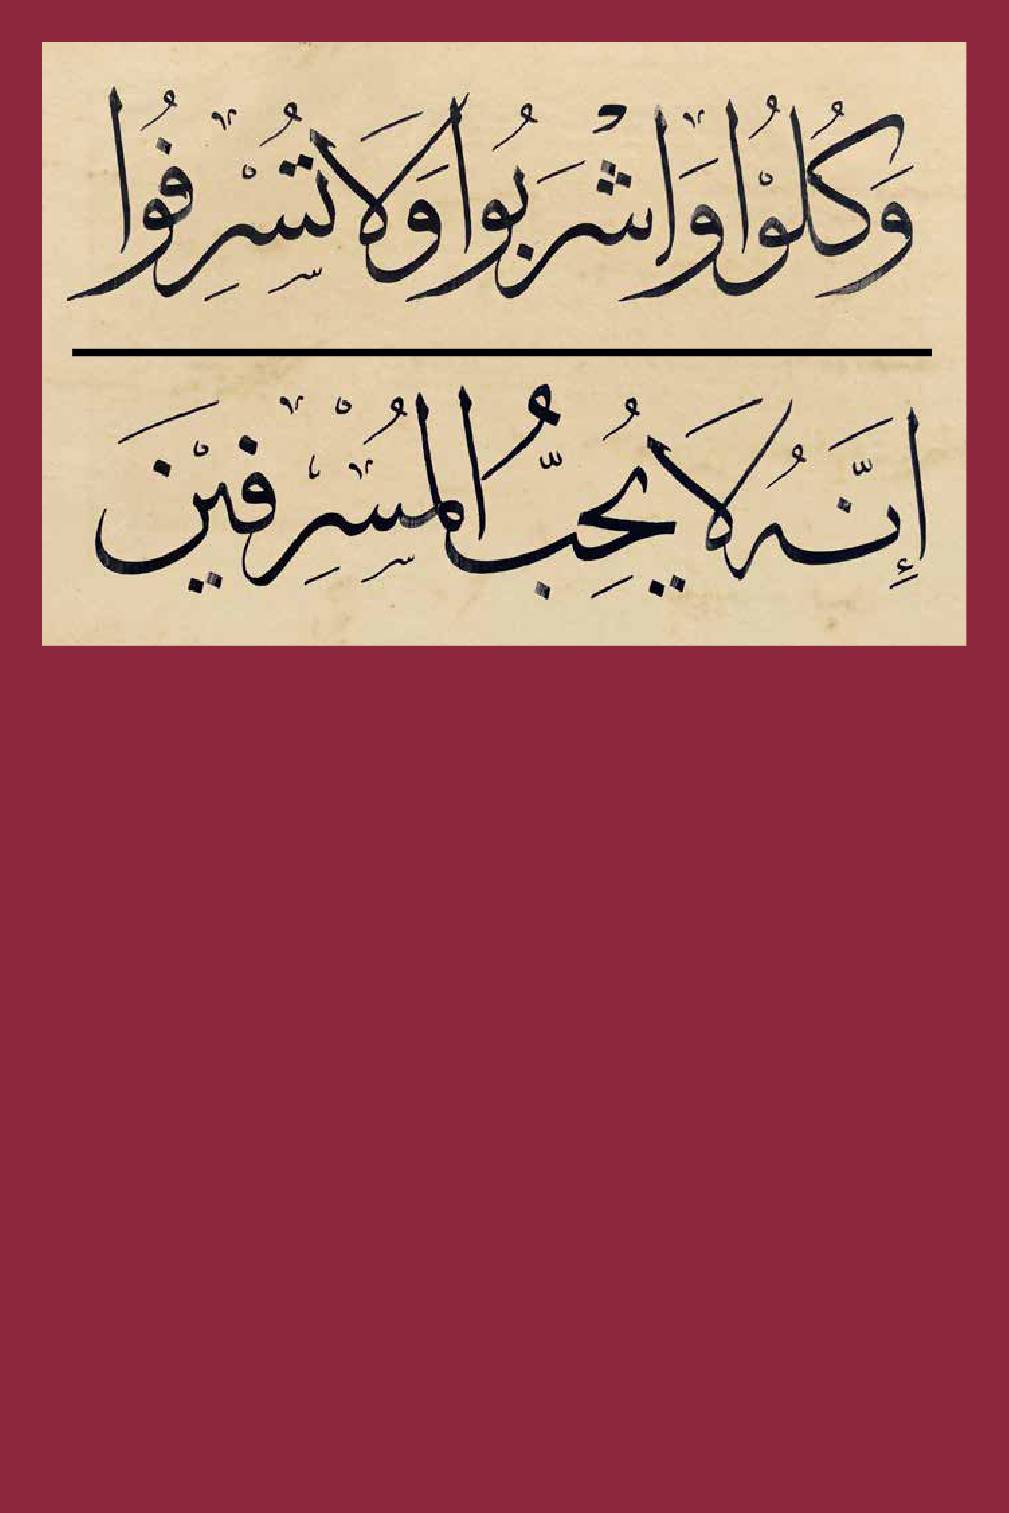 وَكُلُوْا وَاشْرَبُوا وَلَا تُسْرِفُوا
إِنَّهُ لَا يُحِبُّ الْمُسْرِفِيْنَ